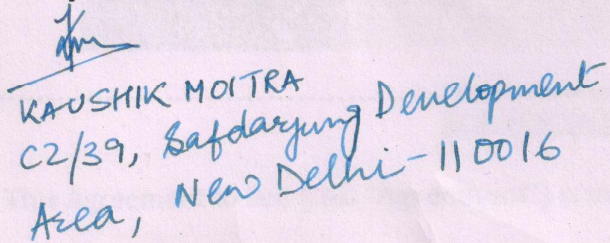 KAUSHIK MOITRA
C2/39, Safdarjung Development
Area, New Delhi - 110016